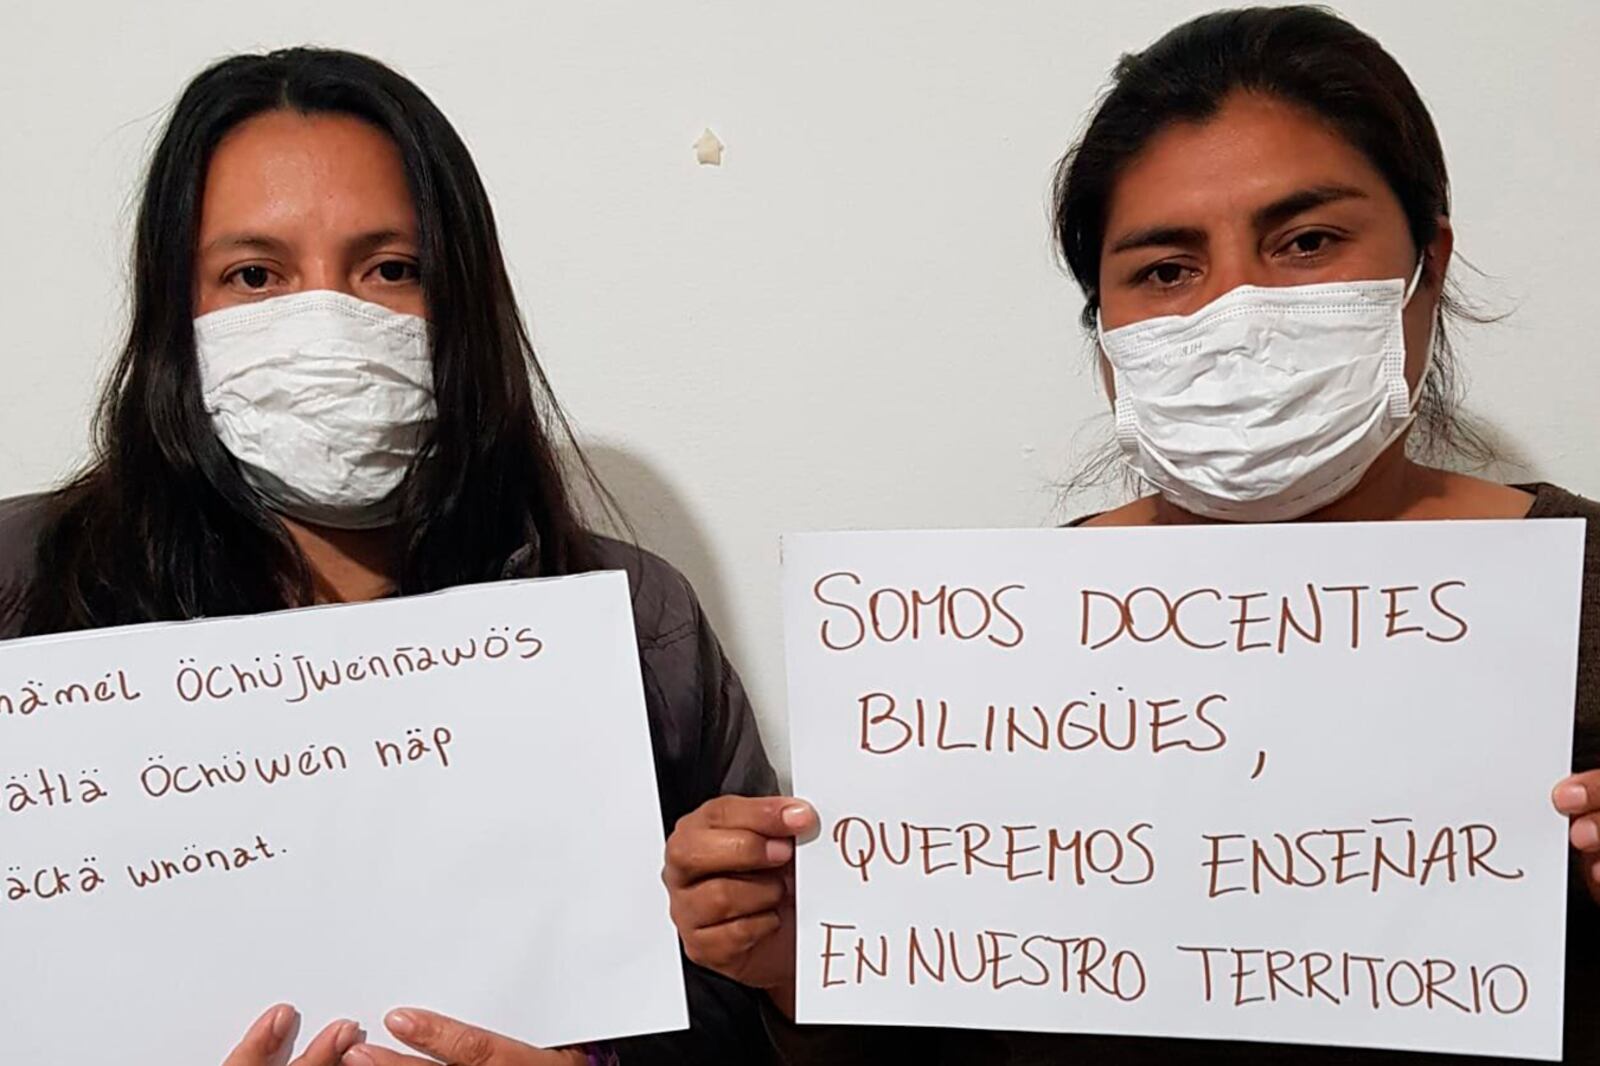 nämél öchüjwénñawös
ätlä öchüwén näp
äckä wnönat.
SOMOS DOCENTES
BILINGÜES,
QUEREMOS ENSEÑAR
EN NUESTRO TERRITORIO